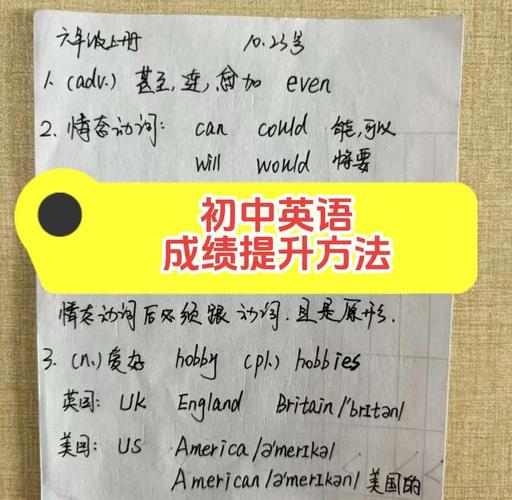 六年级上册 10.23号
1. (adv.) 甚至,连,愈加 even
2. 情态动词: can could 能,可以
will would 将要
初中英语
成绩提升方法
情态动词后必须跟动词.且是原形.
3. (n.) 爱好 hobby (pl.) hobbies
英国: UK England Britain /'brɪtən/
美国: US America /ə'merɪkə/
American /ə'merɪkən/ 美国的